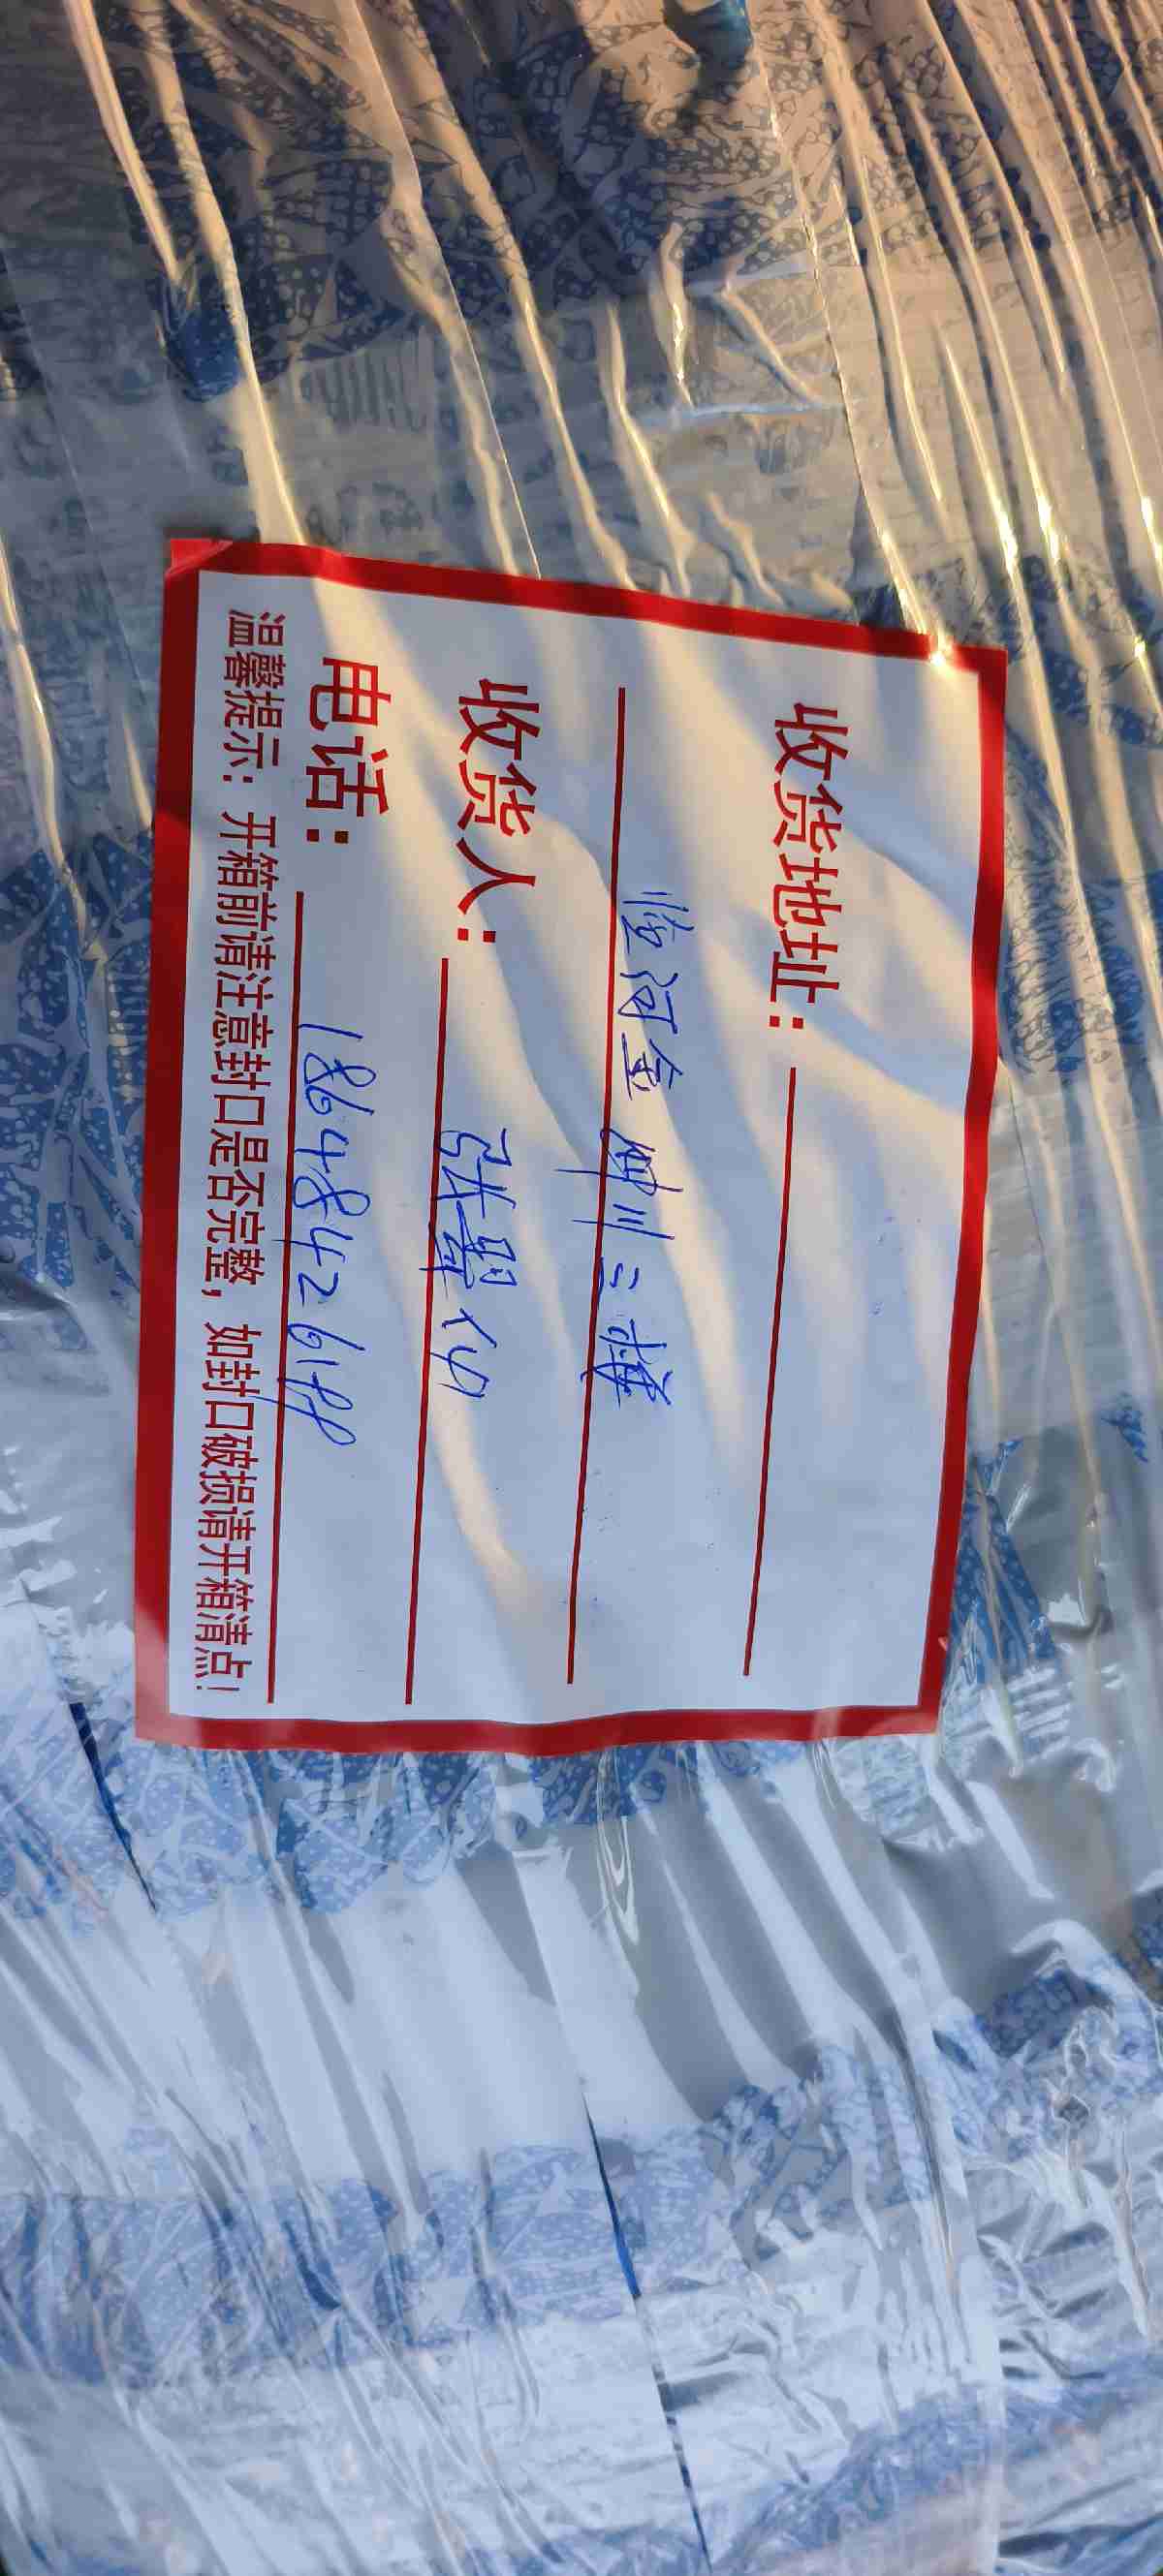 收货地址：
临河金川三楼
收货人：张翼
电话：
温馨提示：开箱前请注意封口是否完整，如封口破损请开箱清点！